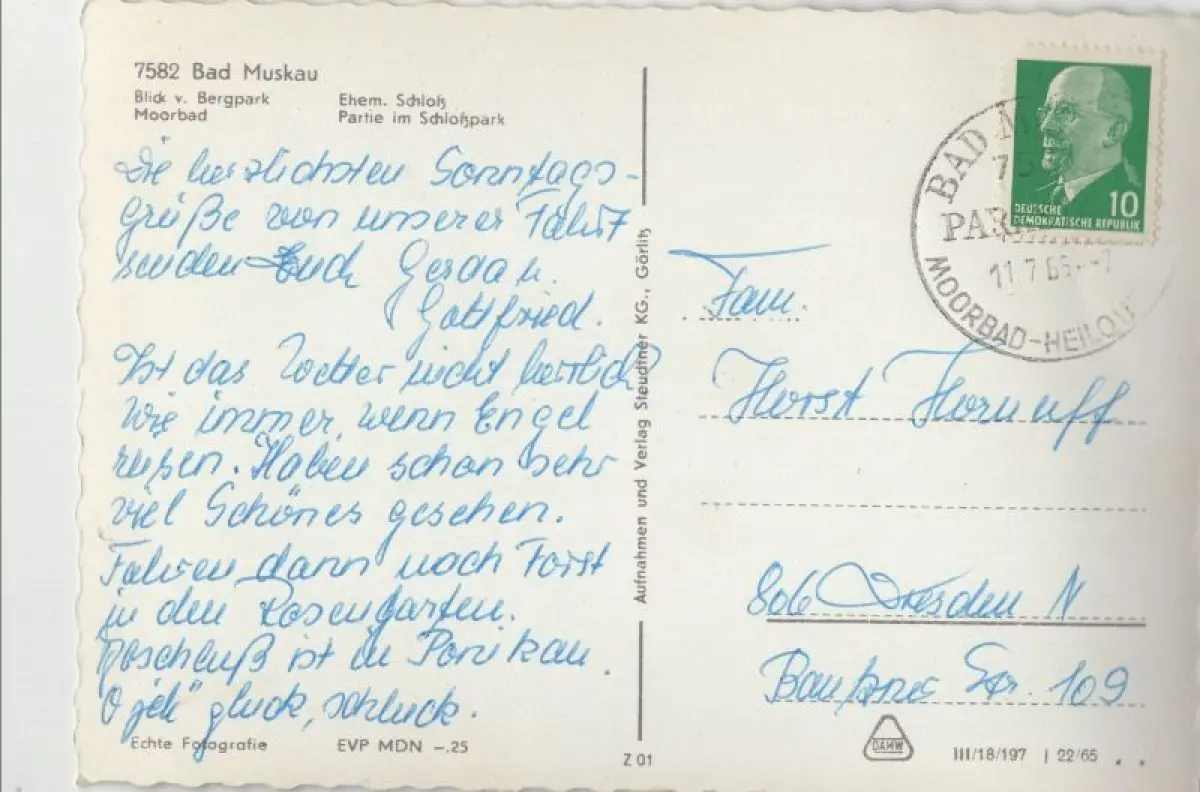 7582 Bad Muskau
Blick v. Bergpark
Moorbad
Ehem. Schloß
Partie im Schloßpark
Die herzlichsten Sonntags-
grüße von unserer Fahrt
senden Euch Gerda u.
Gottfried.
Ist das Wetter nicht herrlich?
Wie immer, wenn Engel
reisen. Haben schon sehr
viel Schönes gesehen.
Fahren dann noch Forst
in den Rosengarten.
ist in
O jeh" gluck, schluck.
Echte Fotografie
EVP MDN –.25
Aufnahmen und Verlag Steudtner KG., Görlitz
Z 01
DEUTSCHE
DEMOKRATISCHE REPUBLIK
10
BAD M
PAR
11.7.66
MOORBAD-HEILQU
Fam.
Horst Hornuff
806 Dresden N
Bautzner Str. 109
DAMW
III/18/197 J 22/65